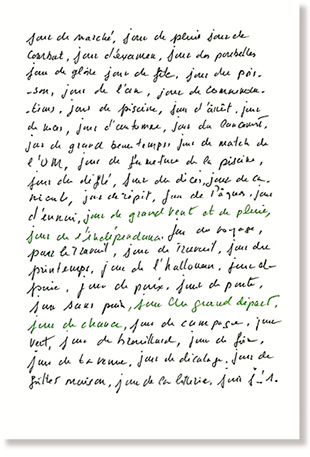 jour de marché, jour de pluie jour de
combat, jour d'examen, jour des poubelles
jour de gloire jour de fête, jour du pois-
-son, jour de l'an, jour de commémora-
-tions, jour de piscine, jour d'arrêt, jour
de mars, jour d'automne, jour du concours,
jour de grand beau temps jour de match de
l'OM, jour de fermeture de la piscine,
jour de défilé, jour de ca-
nicule, jour de répit, jour de Pâques, jour
d'ennui, jour de grand vent et de pluie,
jour de l'indépendance. jour de voyage,
jour de travail, jour du
printemps, jour de l'halloween, jour de
jour de paix, jour de
jour sans pain, jour du grand départ,
jour de chance, jour de campagne, jour
vert, jour de brouillard, jour de
jour de la venue, jour de décalage, jour de
maison, jour de la loterie, jour J-1.